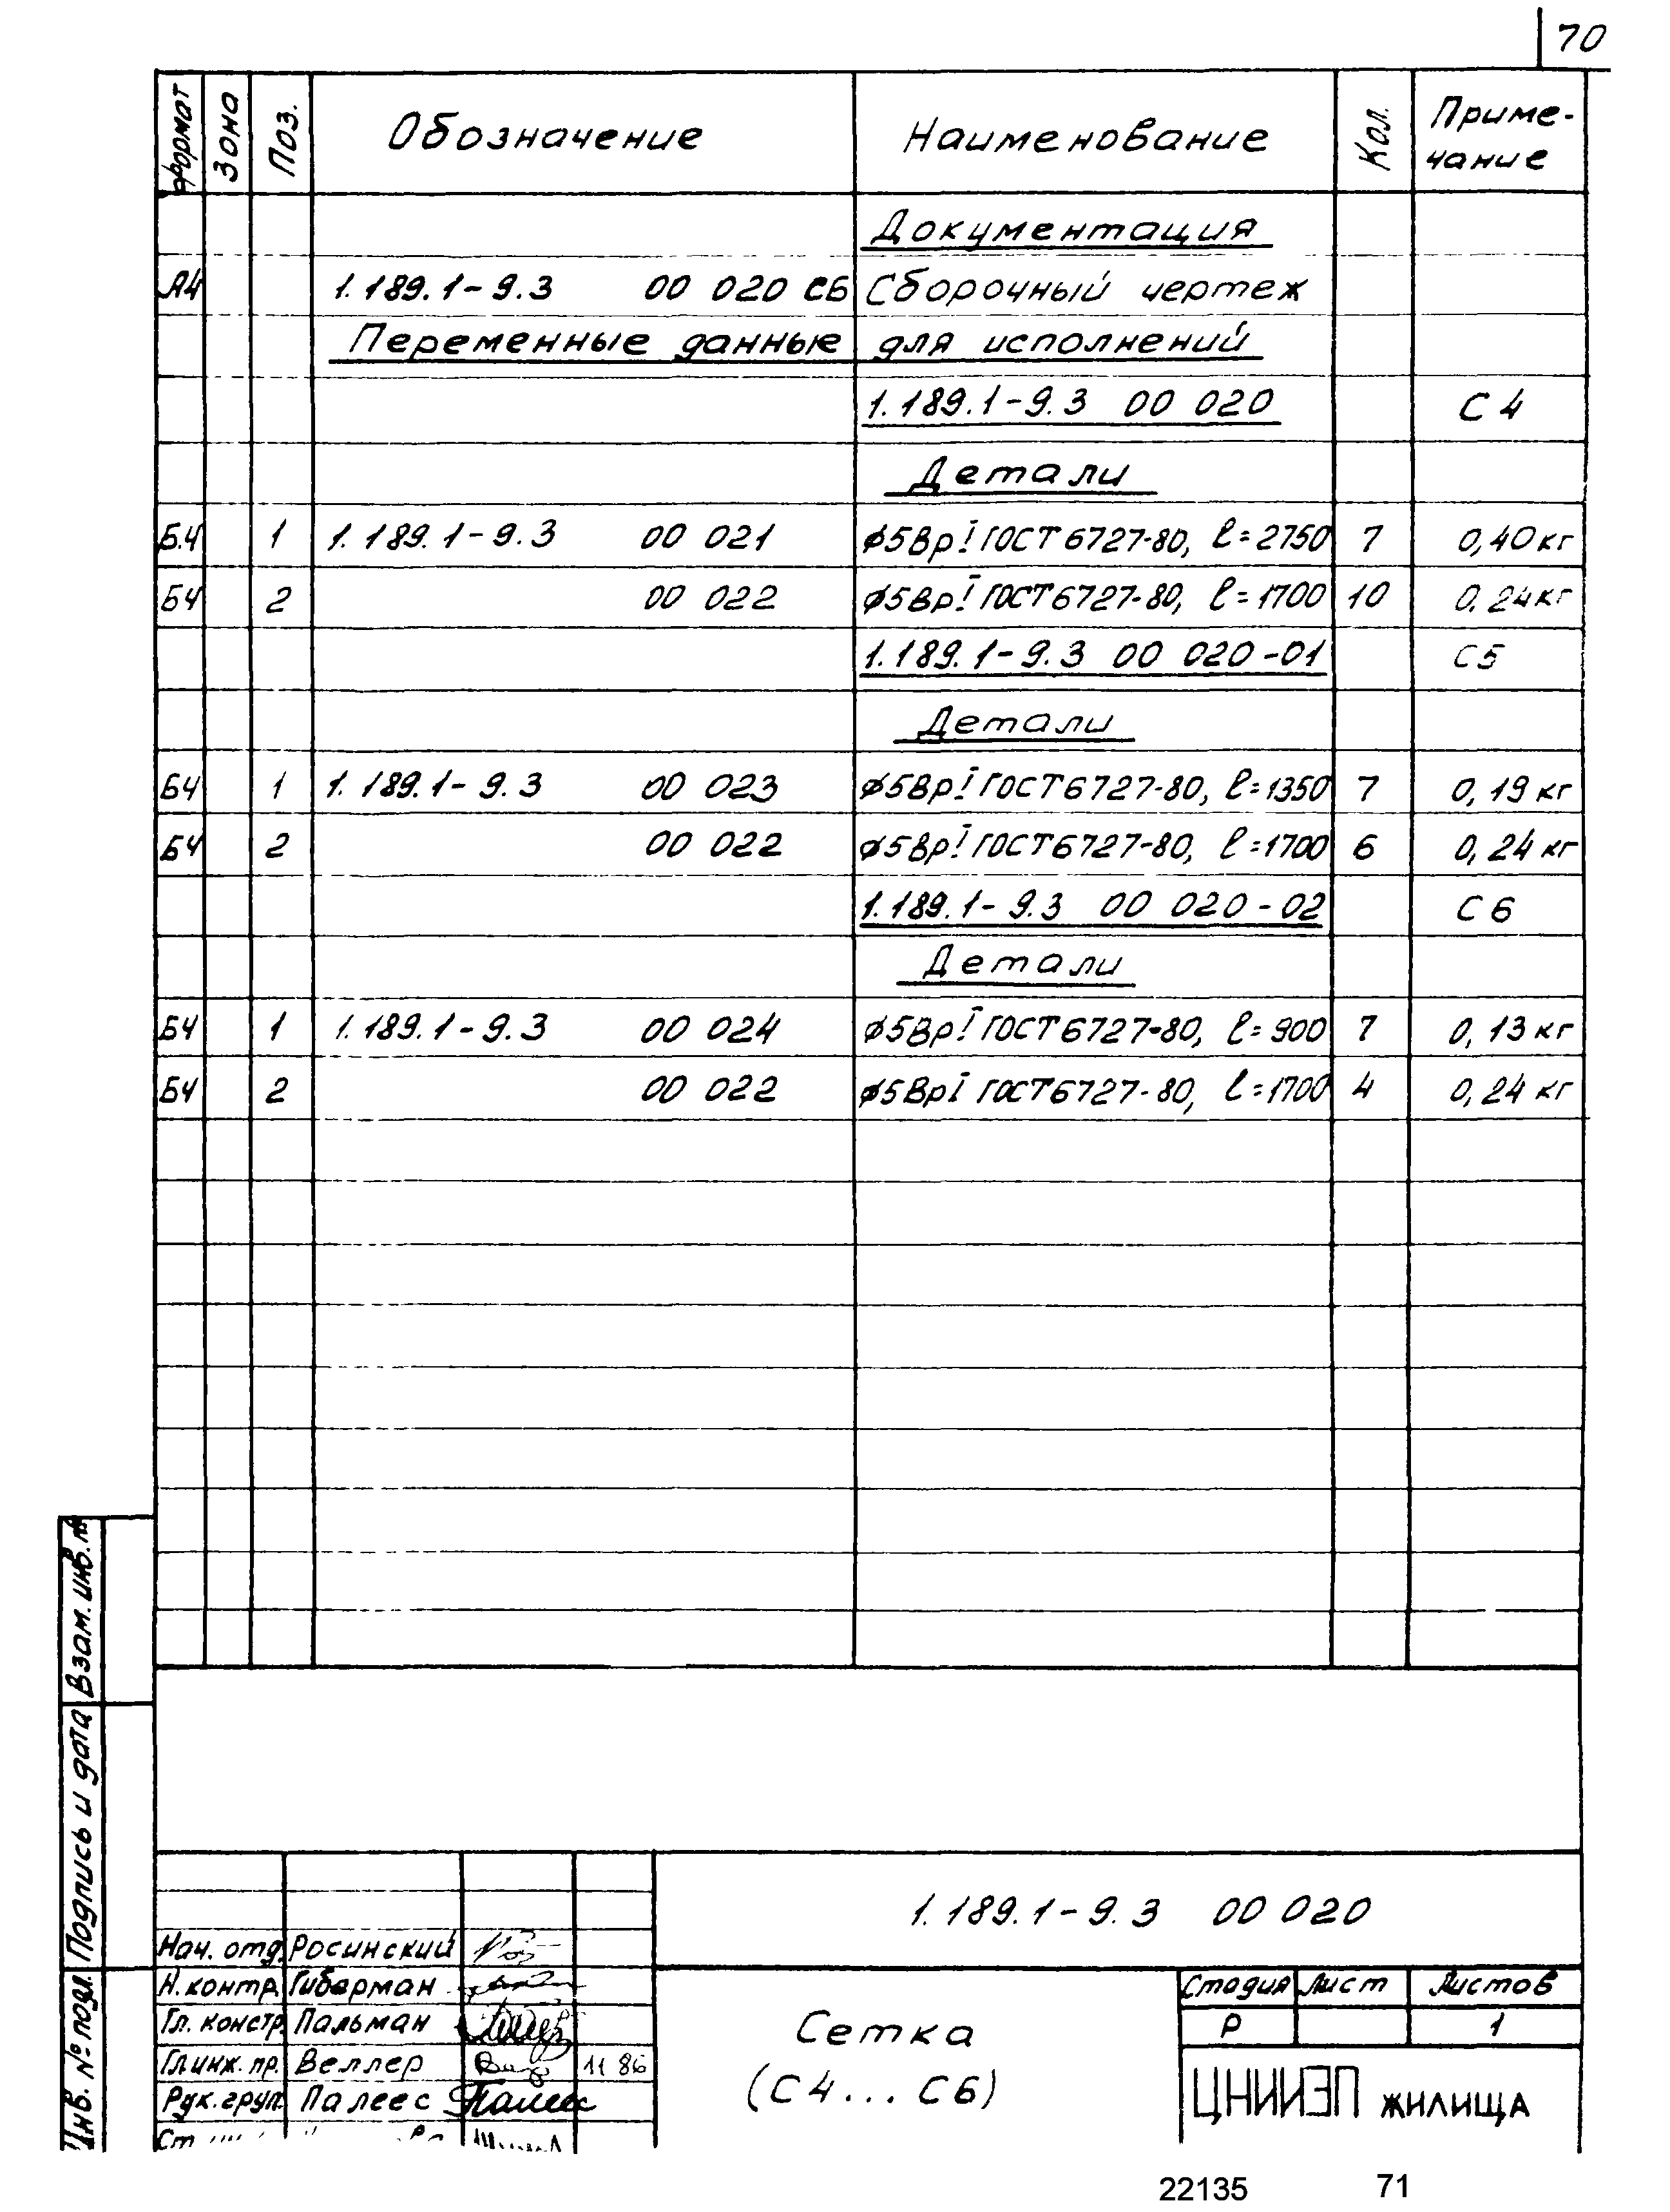 70
Формат Зона Поз. Обозначение Наименование Кол. Приме-
чание
Документация
А4 1.189.1-9.3 00 020 СБ Сборочный чертеж
Переменные данные для исполнений
1.189.1-9.3 00 020 С4
Детали
Б.Ч 1 1.189.1-9.3 00 021 ø5ВрI ГОСТ 6727-80, ℓ=2750 7 0,40 кг
БЧ 2 00 022 ø5ВрI ГОСТ 6727-80, ℓ=1700 10 0,24 кг
1.189.1-9.3 00 020-01 С5
Детали
БЧ 1 1.189.1-9.3 00 023 ø5ВрI ГОСТ 6727-80, ℓ=1350 7 0,19 кг
БЧ 2 00 022 ø5ВрI ГОСТ 6727-80, ℓ=1700 6 0,24 кг
1.189.1-9.3 00 020-02 С6
Детали
БЧ 1 1.189.1-9.3 00 024 ø5ВрI ГОСТ 6727-80, ℓ=900 7 0,13 кг
БЧ 2 00 022 ø5ВрI ГОСТ 6727-80, ℓ=1700 4 0,24 кг
Взам. инв. №
Подпись и дата
Инв. № подл.
1.189.1-9.3 00 020
Нач. отд. Росинский
Н. контр. Гиберман
Гл. констр. Пальман
Гл. инж. пр. Веллер 11 86
Рук. груп. Палеес Палеес
Ст
Сетка
(С4...С6)
Стадия Лист Листов
Р 1
ЦНИИЭП жилища
22135 71